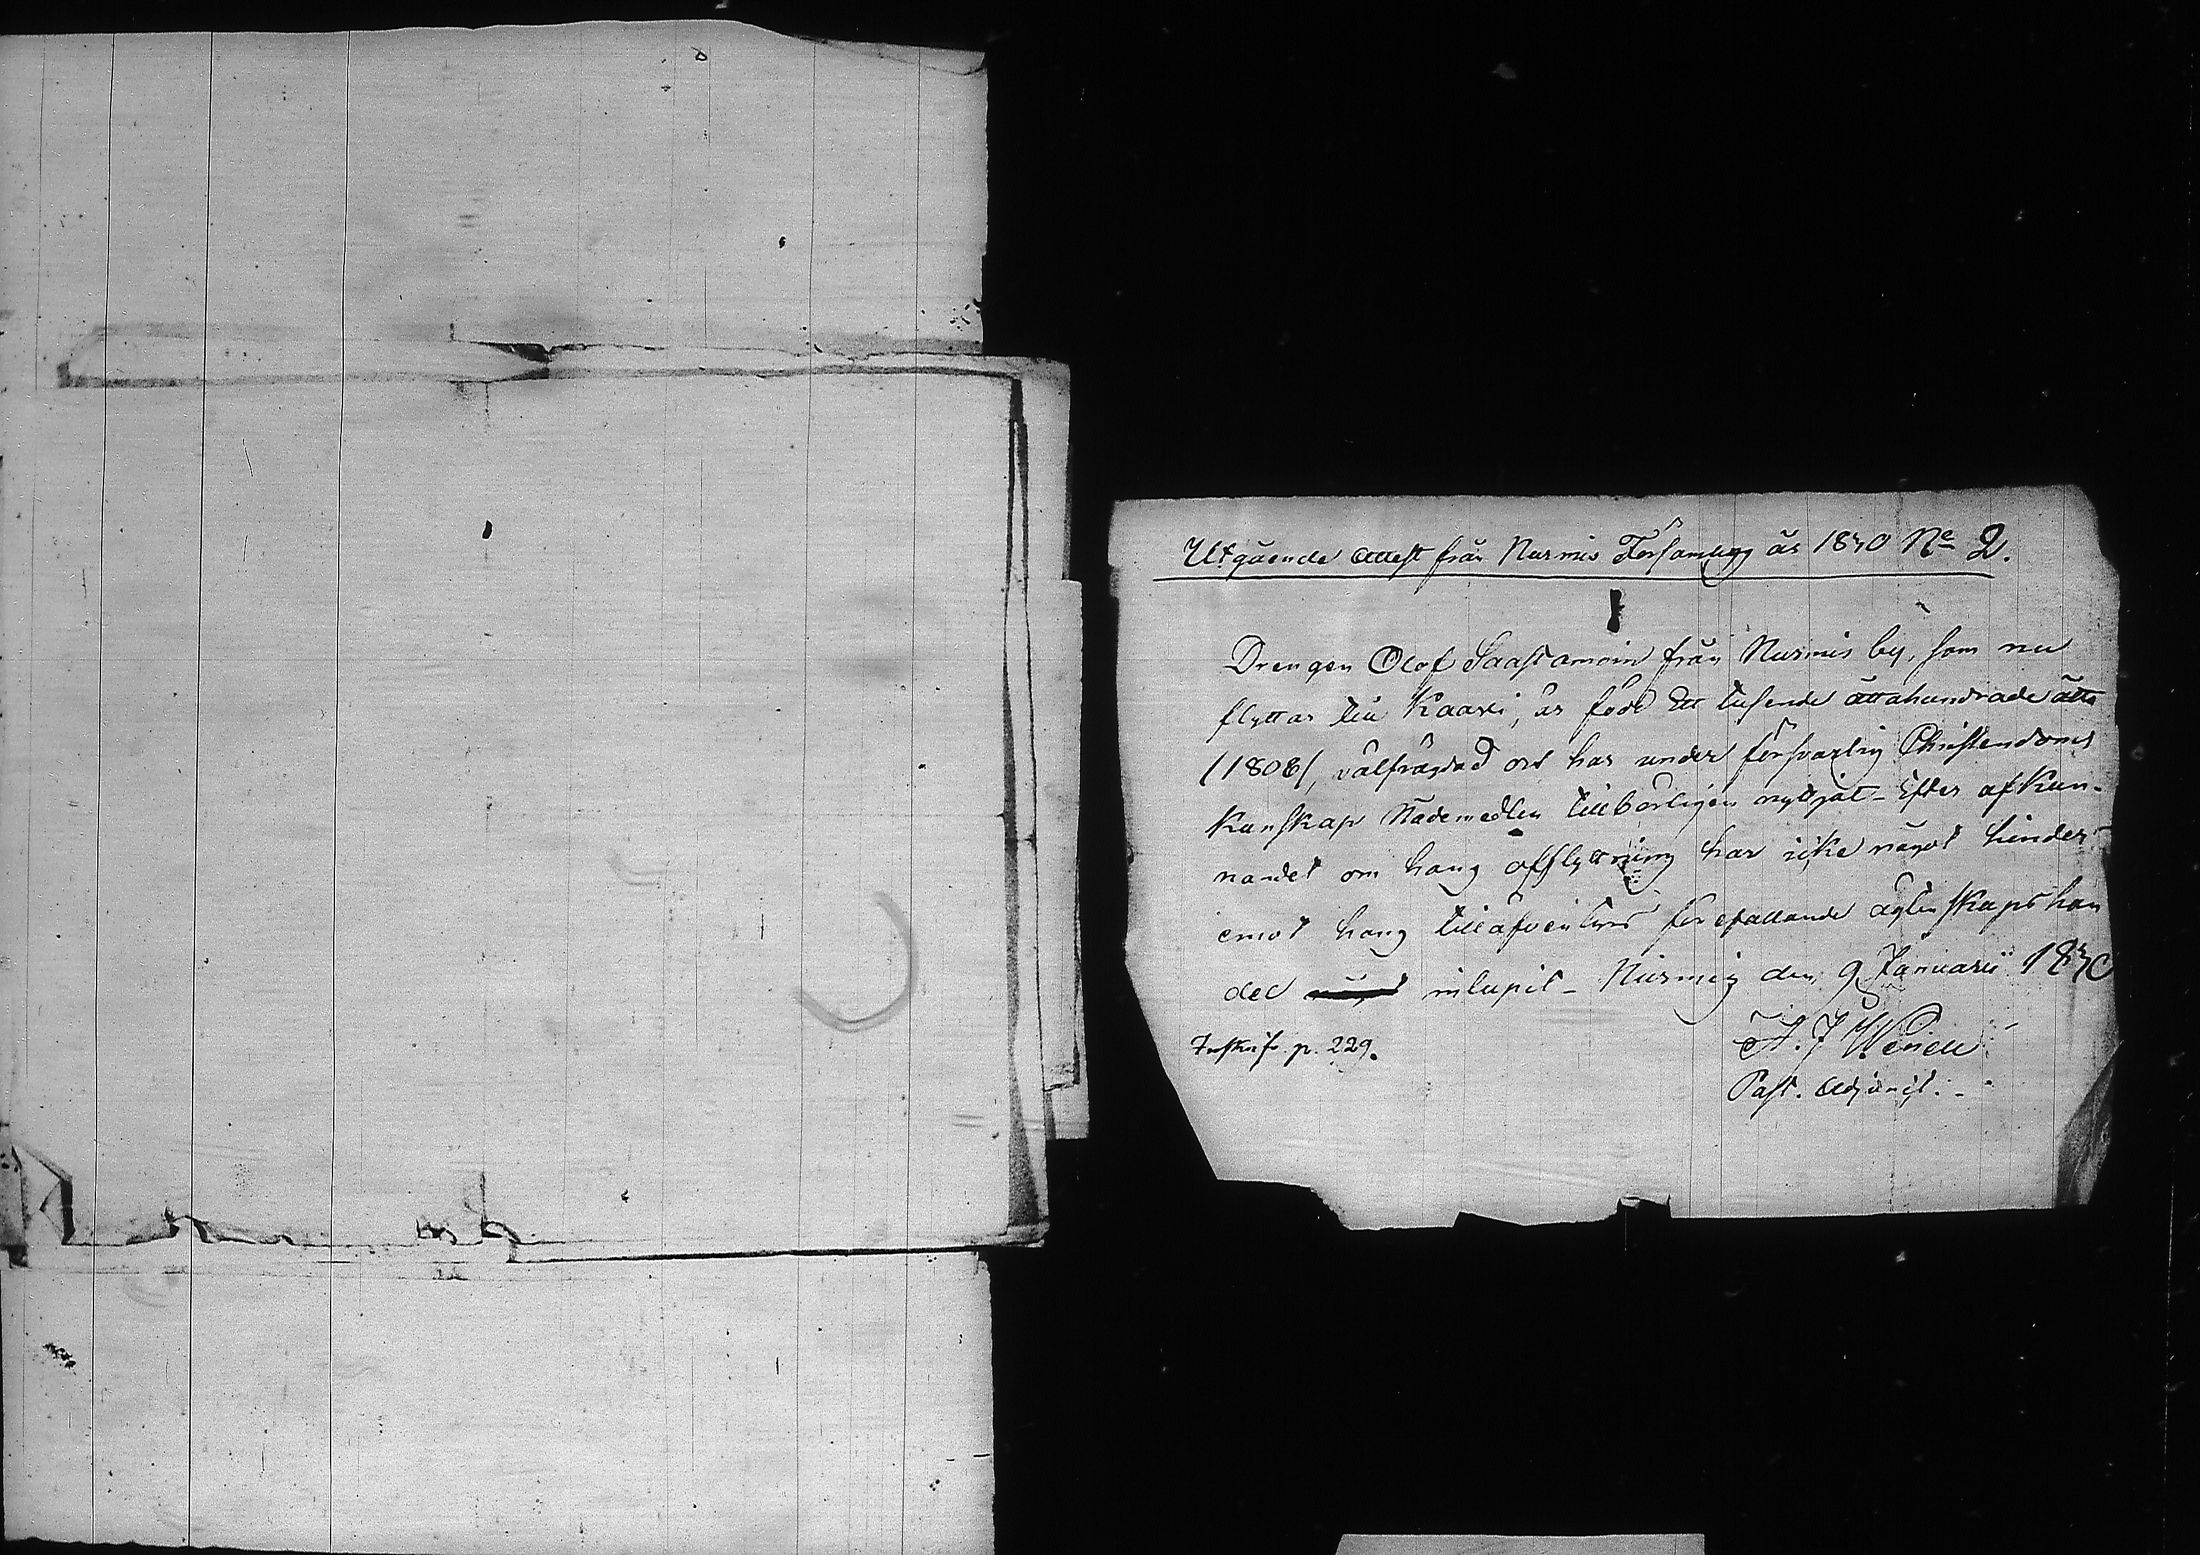 Utgående Attest från Nurmis Församling år 1830 No 2.
Drengen Olof Saastamoin från Nurmis by, som nu
flyttar till Kaavi, är född Ett tusende åttahundrade åtta
/1808/, välfrägdad och har under försvarlig Christendoms
Kunskap Nådemedlen tillbörligen nyttjat - Efter afkun-
nandet om hans afflyttning har icke något hinder
emot hans tilläfventyrs förefallande ägtenskaps han
del inlupit - Nurmis den 9 Januarii 1830
A. J. Wenell
Past. Adjunct. -
p. 229.